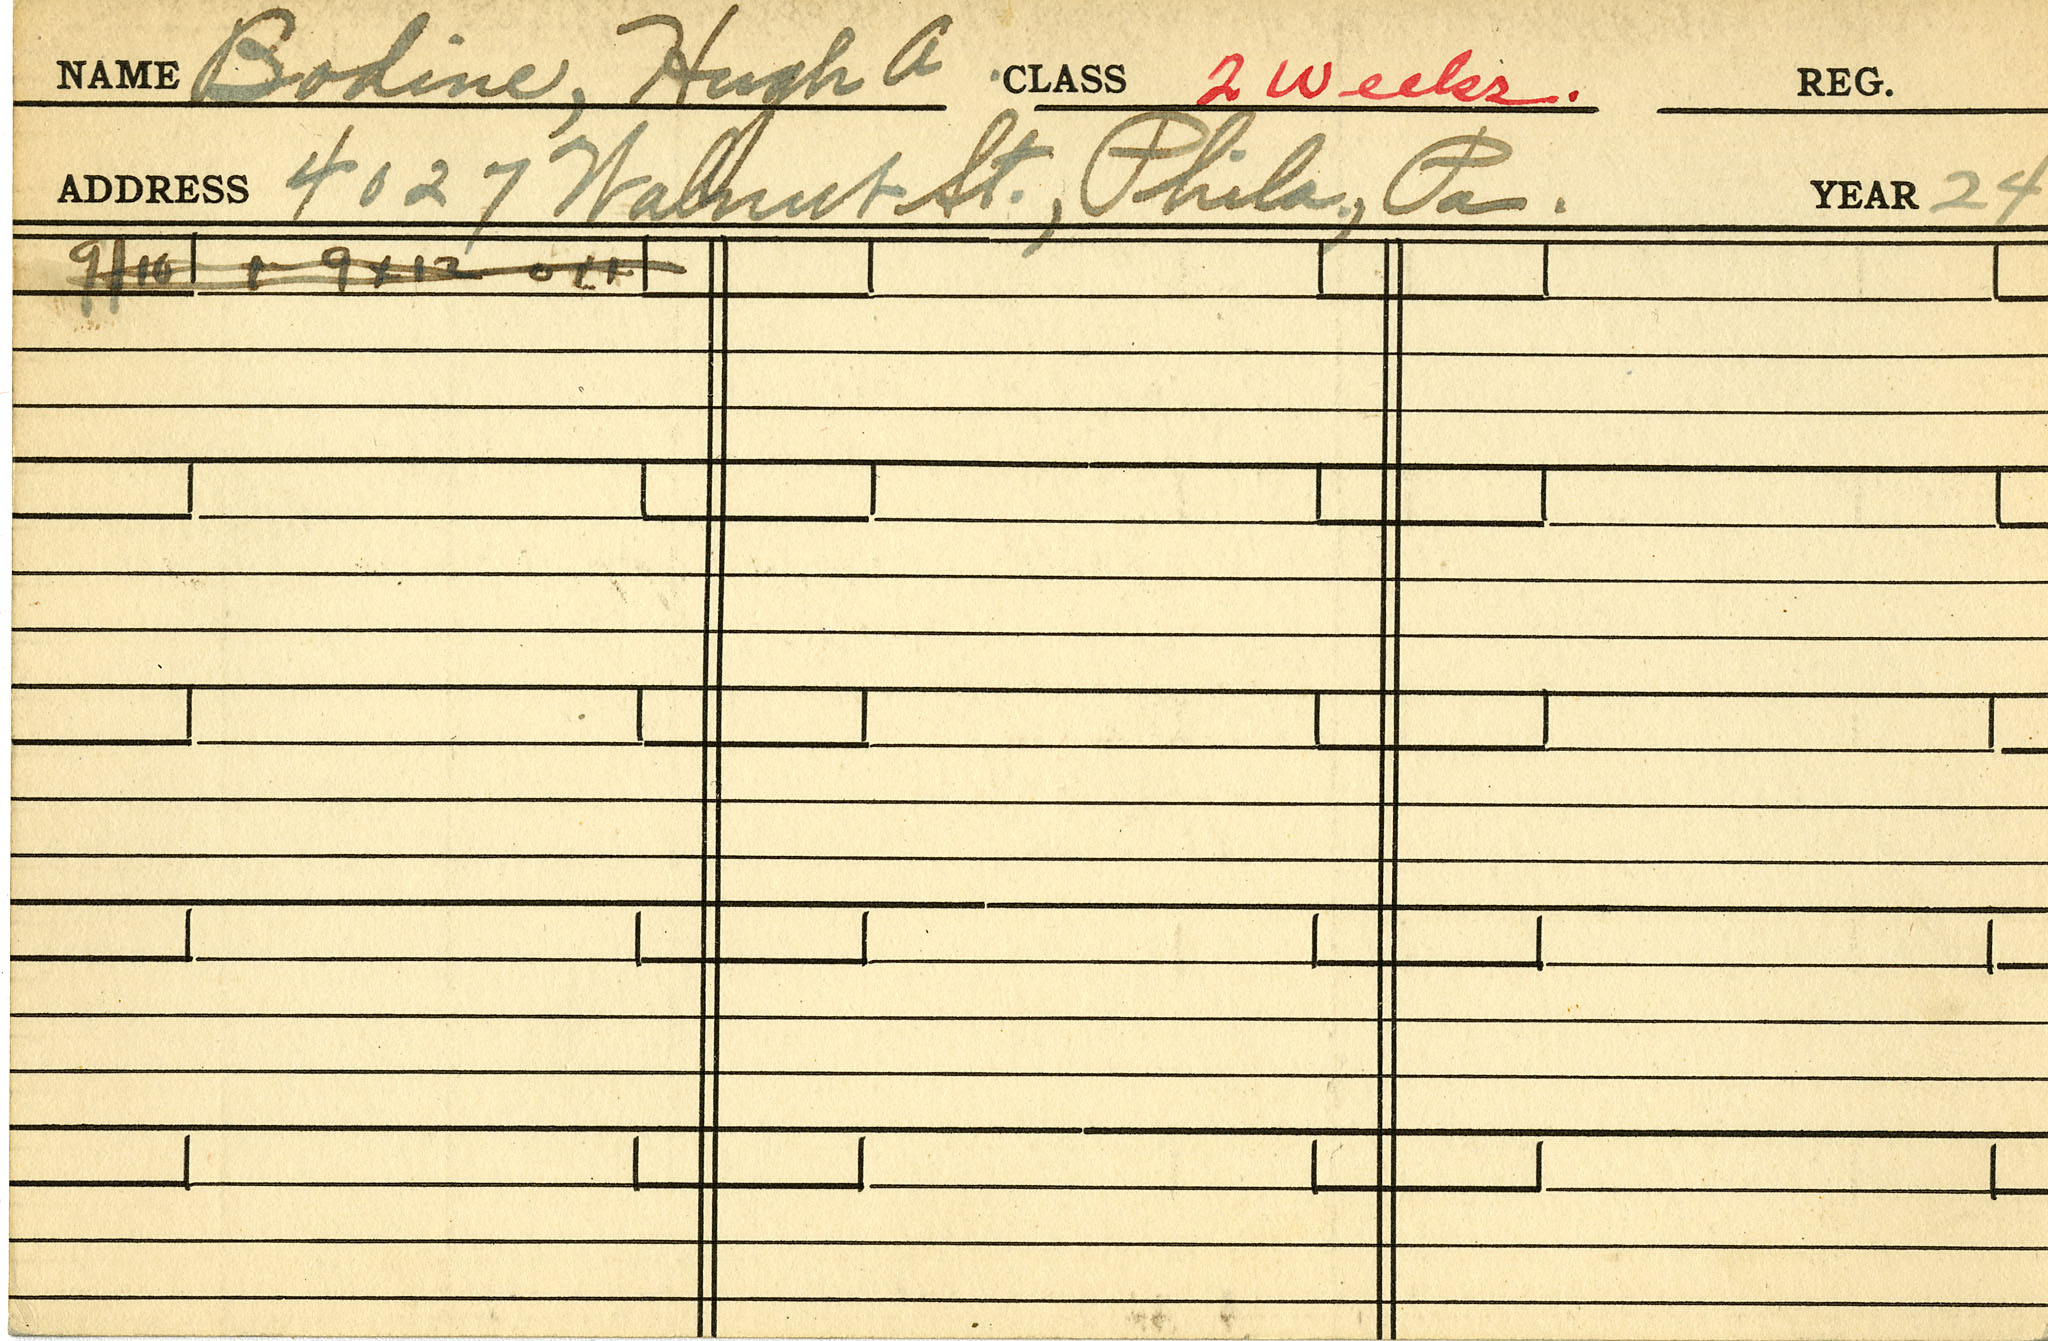 NAME Bodine, Hugh A CLASS 2 Weeks. REG.
ADDRESS 4027 Walnut St., Phila., Pa. YEAR 24
9/10 1 9x12 oil